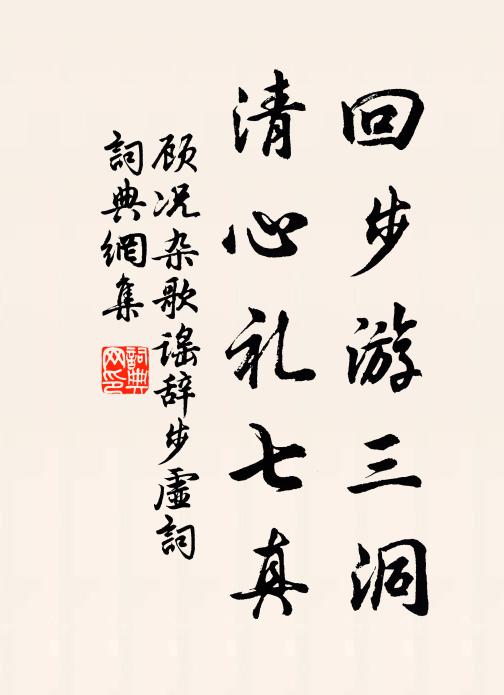 回步游三洞
清心礼七真
顾况杂歌谣辞步虚词
词典網集
詞典
网印